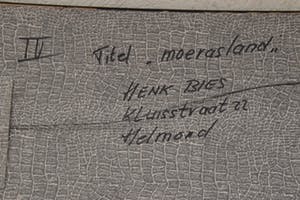 IV
Titel „moerasland„
HENK BIES
Kluisstraat 22
Helmond